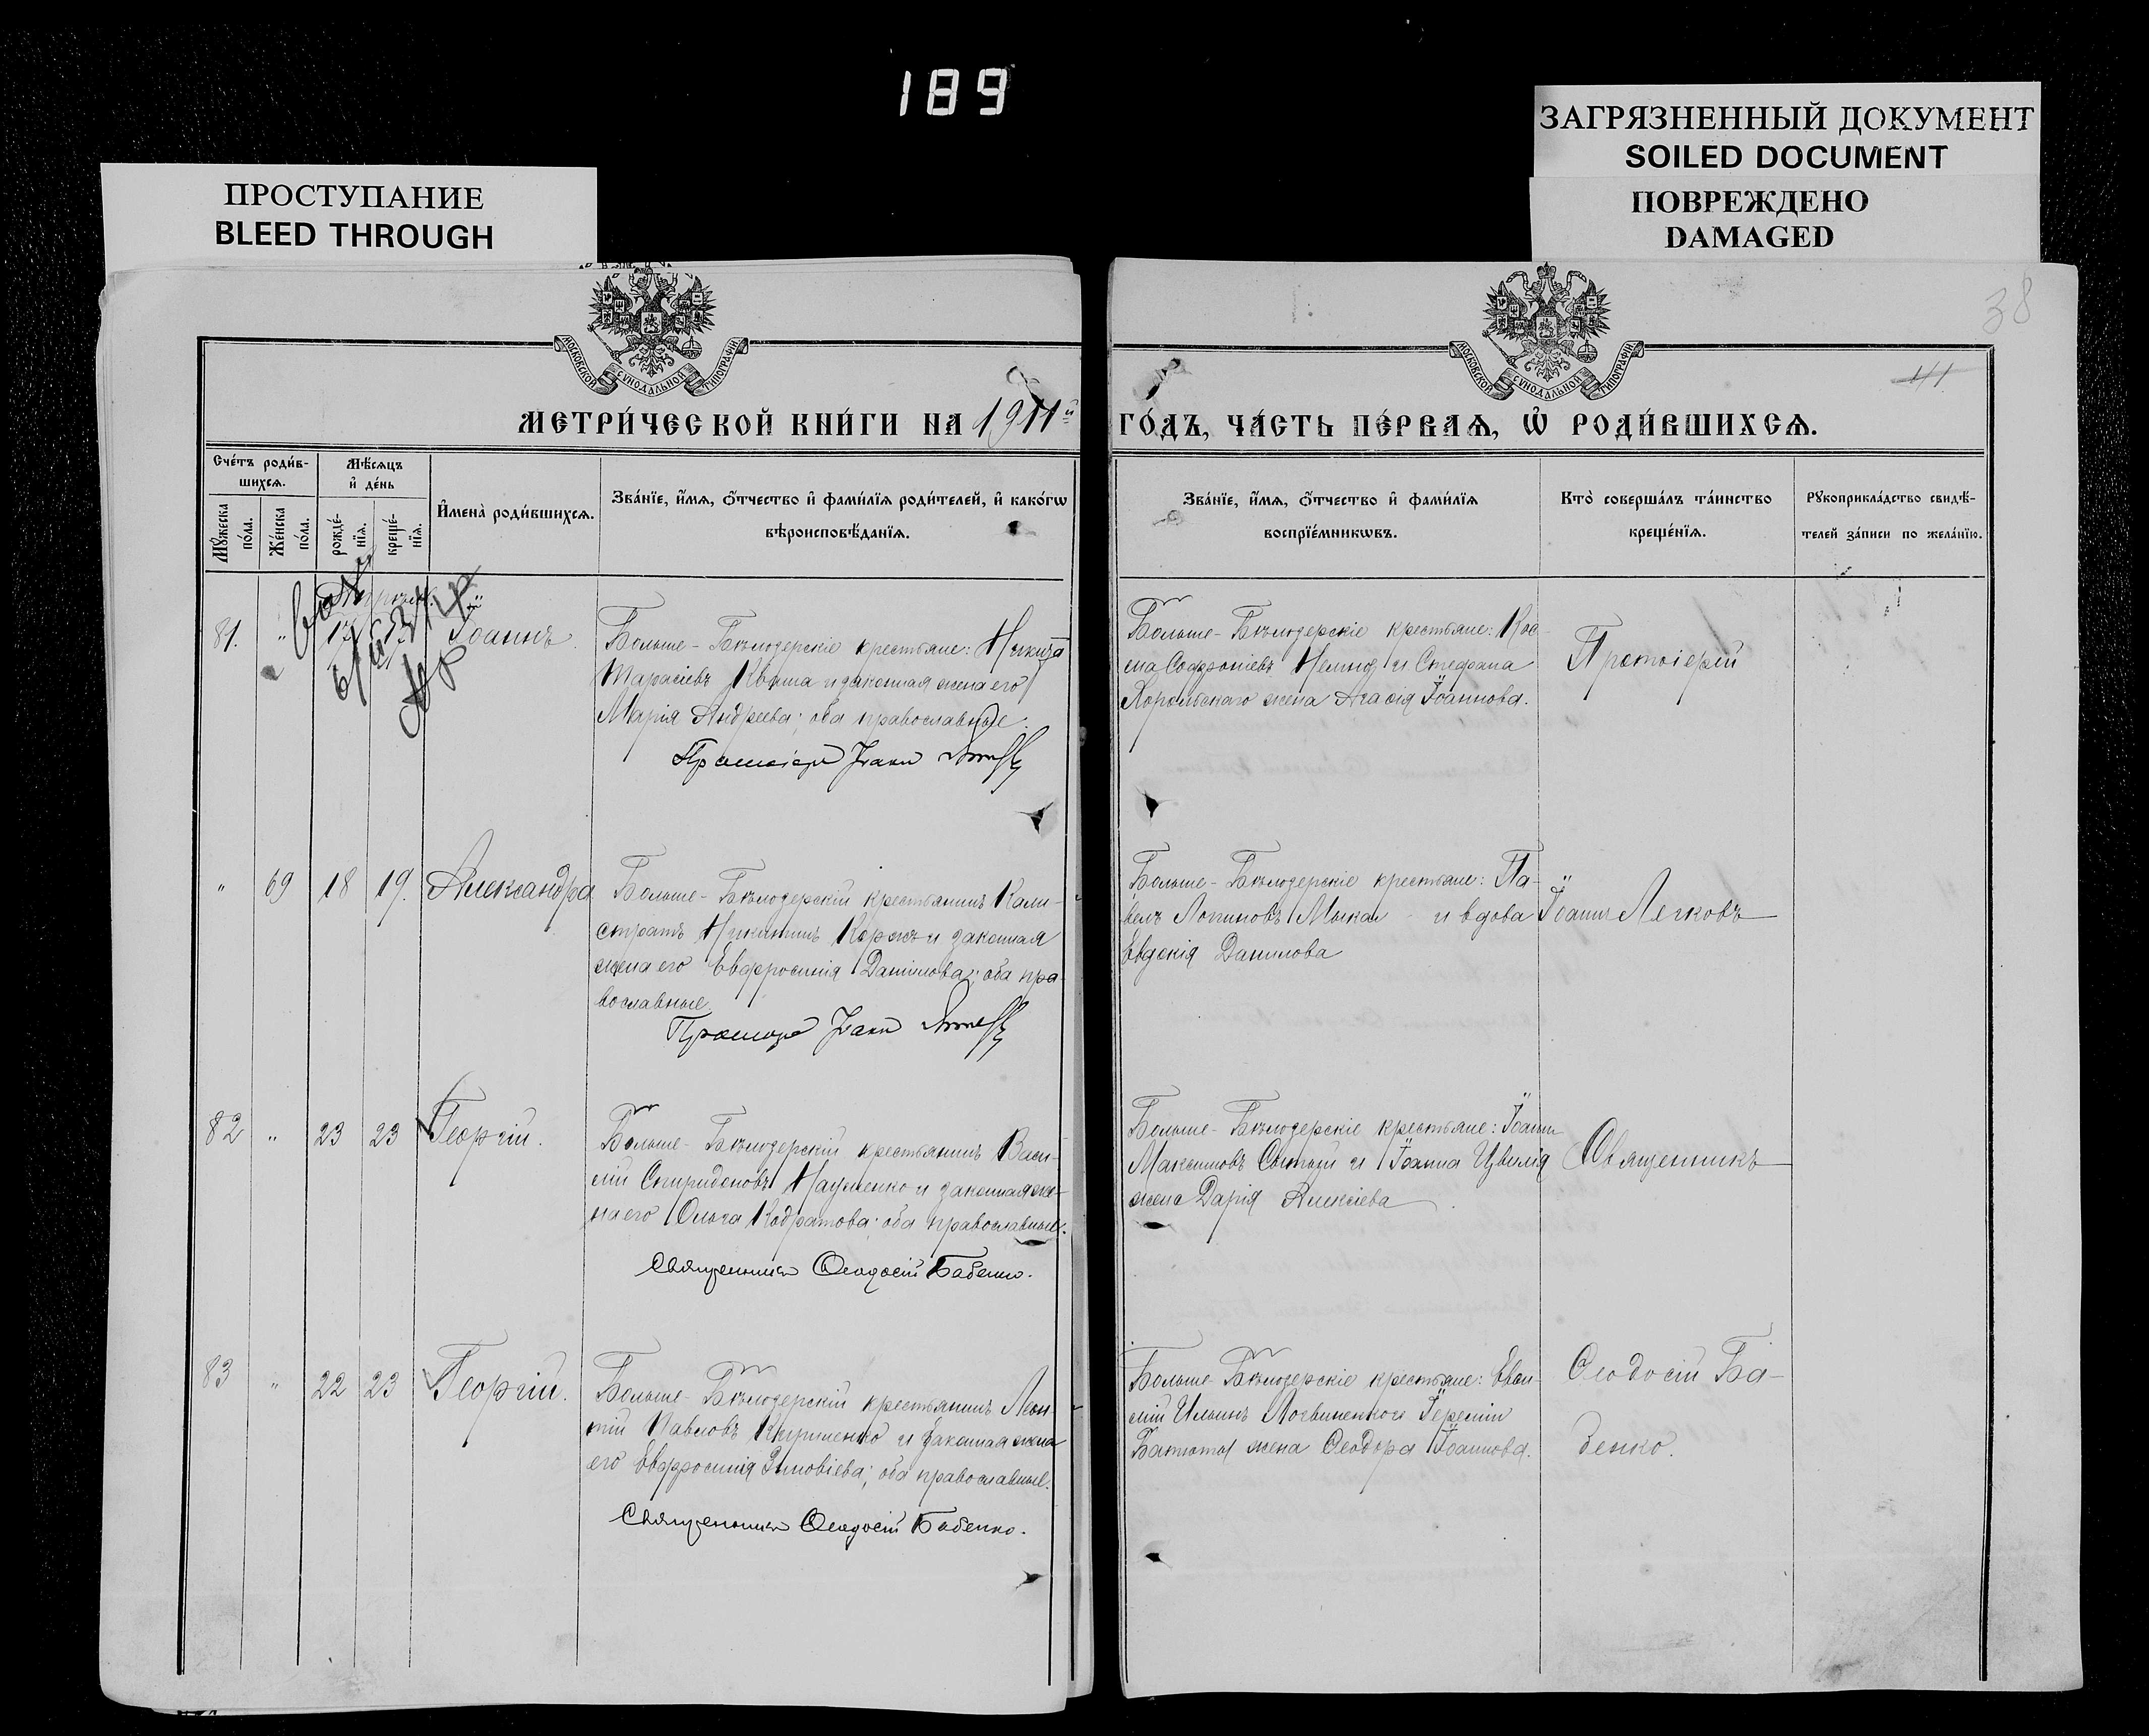 189
ПРОСТУПАНИЕ
BLEED THROUGH
ЗАГРЯЗНЕННЫЙ ДОКУМЕНТ
SOILED DOCUMENT
ПОВРЕЖДЕНО
DAMAGED
38
41
МОСКОВСКОЙ СѴНОДАЛЬНОЙ ТИПОГРАФІИ
МОСКОВСКОЙ СѴНОДАЛЬНОЙ ТИПОГРАФІИ
МЕТРИ́ЧЕСКОЙ КНИ́ГИ НА 1911й
ГО́ДЪ, ЧА́СТЬ ПЕ́РВАѦ, Ѡ҆ РОДИ́ВШИХСѦ.
Сче́тъ роди́в-
шихсѧ.
Мꙋ́жеска по́ла.
Же́нска по́ла.
Мѣ́сѧцъ
и҆ де́нь
рожде́-
нїѧ.
креще́-
нїѧ.
И҆мена̀ роди́вшихсѧ.
Зва́нїе, и҆́мѧ, ѻ҆́тчество и҆ фами́лїѧ роди́телей, и҆ како́гѡ
вѣроисповѣ́данїѧ.
Зва́нїе, и҆́мѧ, ѻ҆́тчество и҆ фами́лїѧ
воспрїе́мникѡвъ.
Кто̀ соверша́лъ та́инство
креще́нїѧ.
Рꙋкоприкла́дство свидѣ́-
телей за́писи по жела́нїю.
81. " 17 Іоаннъ.
Больше-Бѣлозерскіе крестьяне: Никита
Тарасіевъ Квиша и законная жена его
Марія Андреева; оба православные.
Протоіерей Іоанн
Больше-Бѣлозерскіе крестьяне: Кос-
ма Софроніевъ и Стефана
Хорольскаго жена Агафія Іоаннова.
Протоіерей
" 69 18 19. Александра
Больше-Бѣлозерскій крестьянинъ Кали-
стратъ Никитинъ Коржъ и законная
жена его Евфросинія Даніилова; оба пра-
вославные.
Протоіерей Іоанн
Больше-Бѣлозерскіе крестьяне: Па-
велъ Логиновъ и вдова
Евдокія Данилова
Іоаннъ Легковъ
82 " 23 23 Георгій.
Больше-Бѣлозерскій крестьянинъ Васи-
лій Спиридоновъ Науменко и законная же-
на его Ольга Кодратова; оба православные.
Священникъ Ѳеодосій Бабенко.
Больше-Бѣлозерскіе крестьяне: Іоаннъ
Максимовъ Сытый и Іоанна Цвилія
жена Дарія Алексіева
Священникъ
83 " 22 23 Георгій.
Больше-Бѣлозерскій крестьянинъ Леон-
тій Павловъ Кириленко и законная жена
его Евфросинія Зиновіева; оба православные.
Священникъ Ѳеодосій Бабенко.
Больше-Бѣлозерскіе крестьяне:
Ильинъ Логвиненко и Іереміи
жена Ѳеодора Іоаннова.
Ѳеодосій Ба-
бенко.